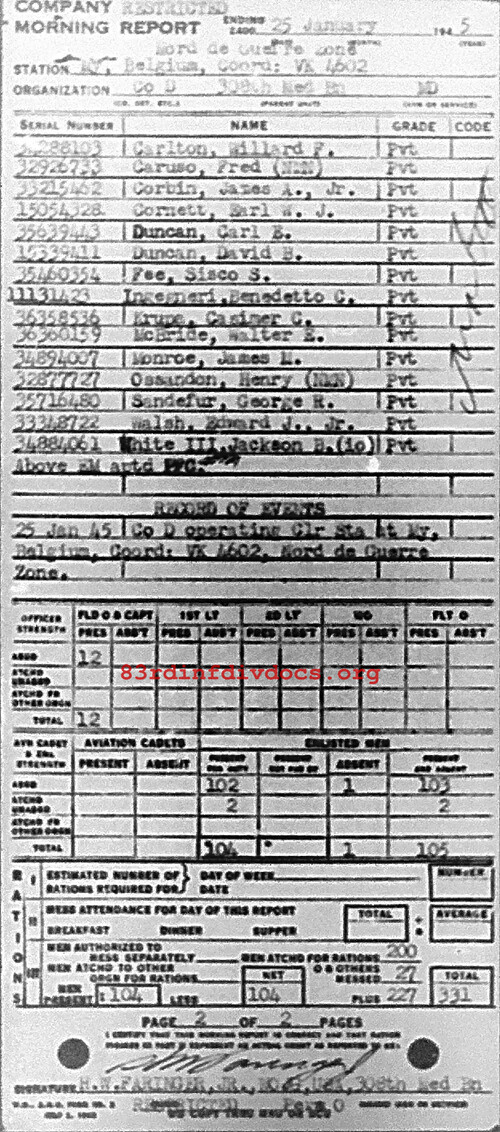 COMPANY RESTRICTED
MORNING REPORT ENDING 2400 25 January 194 5
Nord de Guerre Zone
STATION My, Belgium, Coord: VK 4602
ORGANIZATION Co D 308th Med Bn MD
(CO. DET. ETC.) (PARENT UNIT) (ARM OR SERVICE)
SERIAL NUMBER NAME GRADE CODE
288103 Carlton, Willard F. Pvt
32926733 Caruso, Fred (NMN) Pvt
33215462 Corbin, James A., Jr. Pvt
15054328 Cornett, Earl W. J. Pvt
35639443 Duncan, Carl E. Pvt
15339411 Duncan, David B. Pvt
35460354 Fee, Sisco S. Pvt
11131423 Ingegneri, Benedetto C. Pvt
36358536 Krupa, Casimer C. Pvt
36360159 McBride, Walter E. Pvt
34894007 Monroe, James M. Pvt
32877727 Ossandon, Henry (NMN) Pvt
35716480 Sandefur, George R. Pvt
33348722 Walsh, Edward J., Jr. Pvt
34884061 White III, Jackson B.(io) Pvt
Above EM aptd PFC.
RECORD OF EVENTS
25 Jan 45 Co D operating Clr Sta at My,
Belgium, Coord: VK 4602, Nord de Guerre
Zone.
OFFICER STRENGTH FLD O & CAPT 1ST LT 2D LT WO FLT O
PRES ABS'T PRES ABS'T PRES ABS'T PRES ABS'T PRES ABS'T
ASGD 12
83rdinfdivdocs.org
ATCHD UNASGD
ATCHD FR OTHER ORGN
TOTAL 12
AVN CADET & ENL STRENGTH AVIATION CADETS ENLISTED MEN
PRESENT ABSENT PRESENT FOR DUTY PRESENT NOT FOR DY ABSENT PRESENT AND ABSENT
ASGD 102 1 103
ATCHD UNASGD 2 2
ATCHD FR OTHER ORGN
TOTAL 104 1 105
RATIONS
I ESTIMATED NUMBER OF RATIONS REQUIRED FOR } DAY OF WEEK DATE NUMBER
II MESS ATTENDANCE FOR DAY OF THIS REPORT TOTAL AVERAGE
BREAKFAST DINNER SUPPER
III MEN AUTHORIZED TO MESS SEPARATELY MEN ATCHD FOR RATIONS 200
MEN ATCHD TO OTHER ORGN FOR RATIONS NET O & OTHERS MESSED 27 TOTAL
MEN PRESENT: 104 LESS 104 PLUS 227 331
PAGE 2 OF 2 PAGES
I CERTIFY THAT THIS MORNING REPORT IS CORRECT
SIGNATURE H.W.FARINGER, JR., 308th Med Bn
RESTRICTED